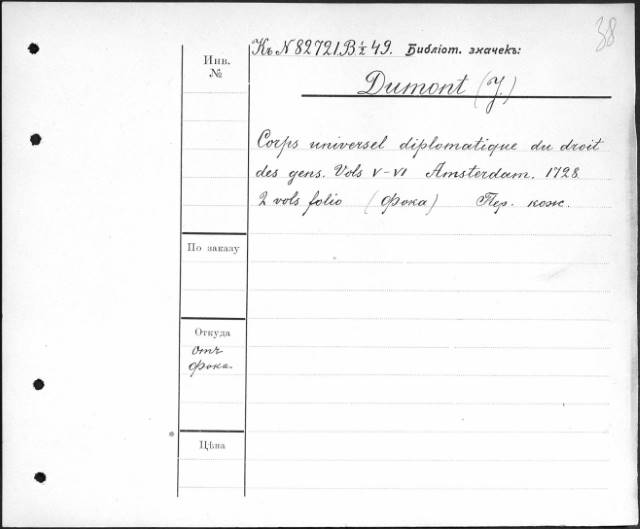 38
Къ N 82721.B½49. Библіот. значекъ:
Инв.
№
Dumont (J.)
Corps universel diplomatique du droit
des gens. Vols V-VI Amsterdam. 1728
2 vols folio (Фока) Пер. кож.
По заказу
Откуда
отъ
Фока.
Цѣна